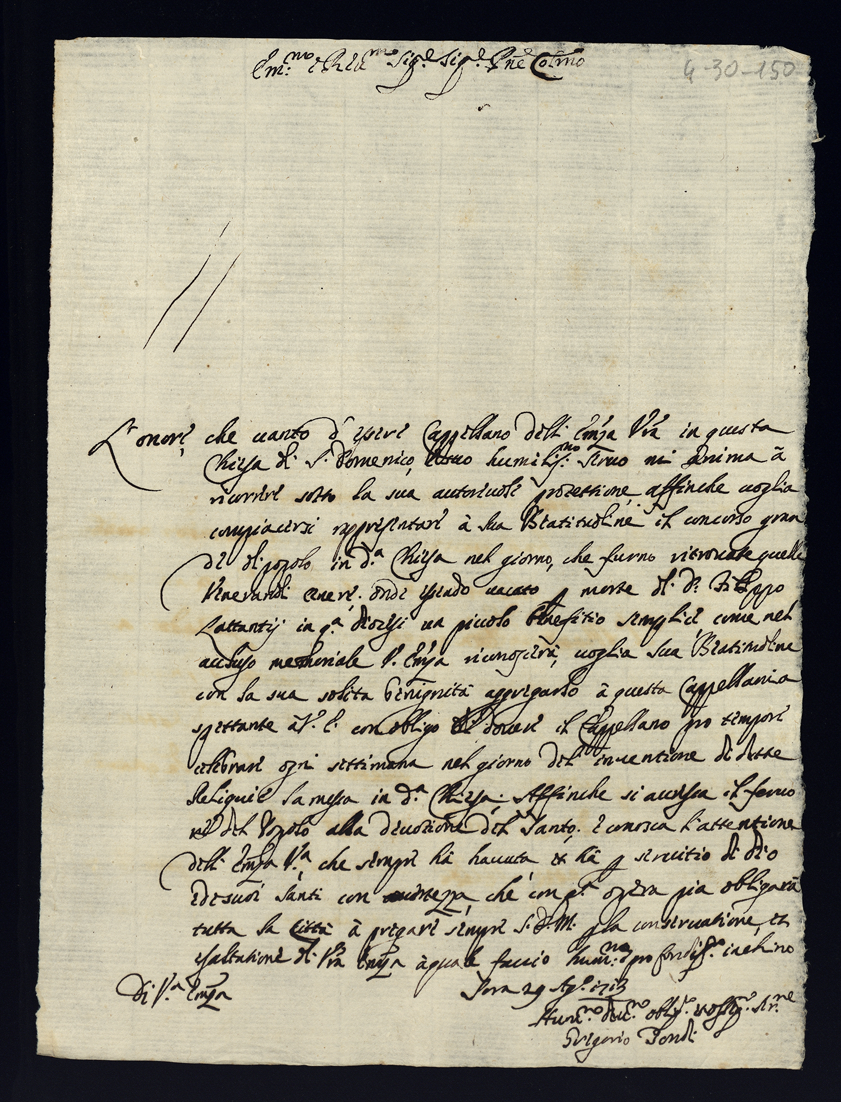 Em.mo e R.mo Sig.re Sig.re P.rone Col.mo
4-30-150
L'onore, che vanto d'essere Cappellano dell'Em.za V.ra in questa
Chiesa di S. Domenico, suo humiliss.mo servo mi anima à
ricorrere sotto la sua autorevole protettione, affinche voglia
compiacersi rappresentare à Sua Beatitudine il concorso gran
de di popolo in d.a Chiesa nel giorno, che furno ritrovate quelle
Venerandi ceneri. onde essendo vacato p morte di D. Filippo
Lattantij in q.a diocesi un piccolo benefitio semplice, come nel
acluso memoriale V. Em.za riconoscerà, voglia Sua Beatitudine
con la sua solita benignità aggregarlo à questa Cappellania
spettante à V. E. con obligo di dovere il Cappellano pro tempore
celebrare ogni settimana nel giorno dell'inventione di dette
Reliquie la messa in d.a Chiesa. Affinche si accresca il fervo
re del Popolo alla devotione del Santo. e conosca l'attentione
dell'Em.za V.ra che sempre hà havuta et hà p servitio di Dio
e de suoi Santi con che con q.a opera pia obligarà
tutta la Città à pregare sempre S. D. M. p la conservatione, et
esaltatione di V.ra Em.za à quale faccio hum.ma e profondiss.o inchino
Di V.ra Em.za Sora 29 Ag.o 1713
Hum.mo dev.mo oblig.mo osseq.mo Ser.re
Gregorio